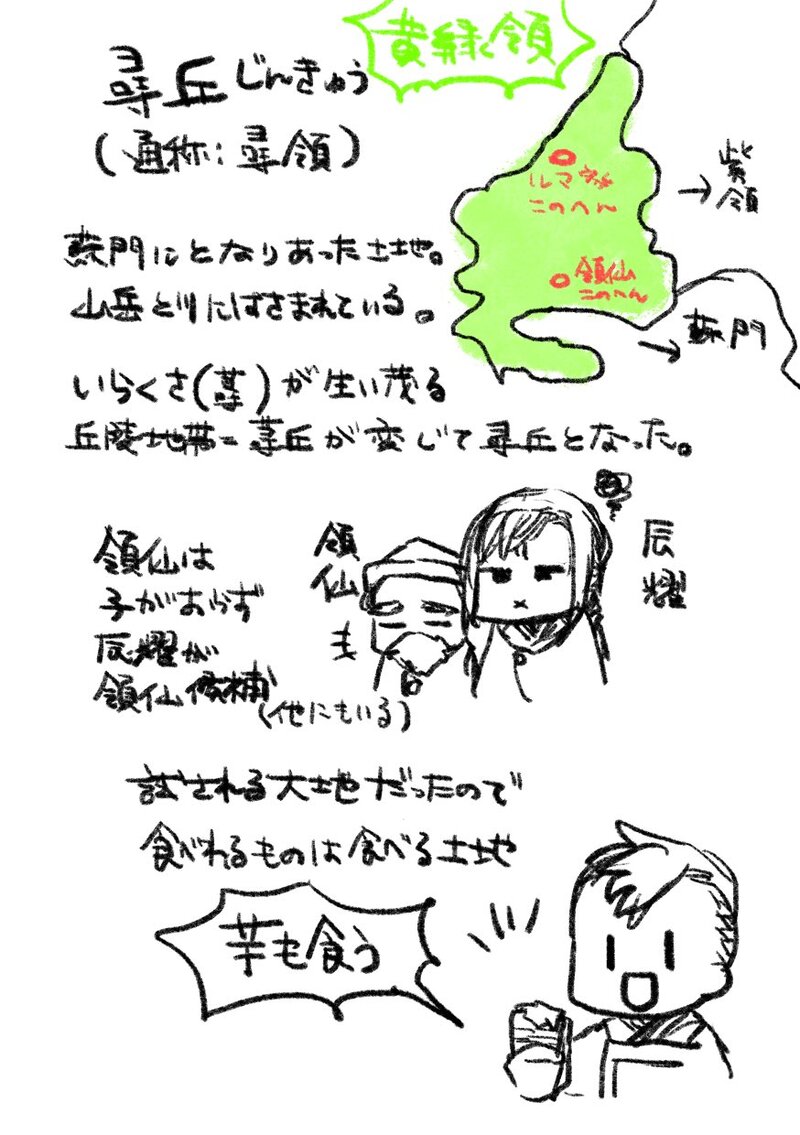 黄緑領
尋丘じんきゅう
(通称:尋領)
→紫領
ルマ
このへん
領仙
このへん
→蘇門
蘇門にとなりあった土地。
山岳と川にはさまれている。
いらくさ(蕁)が生い茂る
丘陵地帯=蕁丘が変じて尋丘となった。
領仙は
子がおらず
辰耀が
領仙候補
(他にもいる)
領仙
辰耀
試される大地だったので
食べれるものは食べる土地
芋も食う